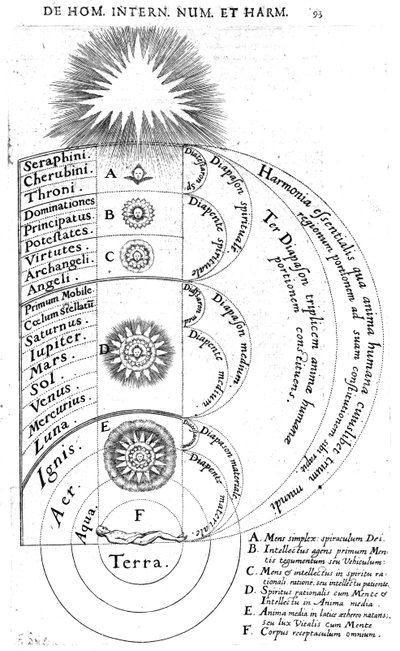 DE HOM. INTERN. NUM. ET HARM. 93
Seraphini.
Cherubini.
Throni.
Dominationes
Principatus.
Poteſtates.
Virtutes.
Archangeli.
Angeli.
Primum Mobile.
Cœlum Stellatũ
Saturnus.
Iupiter.
Mars.
Sol.
Venus.
Mercurius.
Luna.
Ignis.
Aer.
Aqua.
Terra.
A
B
C
D
E
F
Diateſſaron Sp
Diapaſon ſpirituale
Diapente ſpirituale
Diapaſon medium.
Diapente medium.
Diapaſon materiale
Diapente materiale.
Ter Diapaſon triplicem animæ humanæ
portionem conſtituens.
Harmonia eſſentialis qua anima humana cuiuslibet trium
regionum portionem ad suam conſtitutionem ſibi
mundi.
A. Mens simplex: spiraculum Dei.
B. Intellectus agens primum Men-
tis tegumentum seu Vehiculum:
C. Mens & intellectus in spiritu ra-
tionali, ratione, seu intellectu patiente.
D. Spiritus rationalis cum Mente &
Intellectu in Anima media.
E. Anima media in latice æthereo natans;
seu lux Vitalis cum Mente
F. Corpus receptaculum omnium.